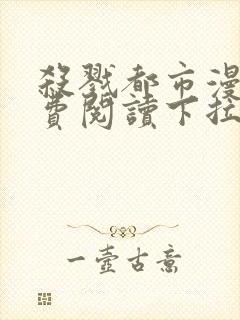 殺戮都市漫
費閱讀下拉
一壺古意